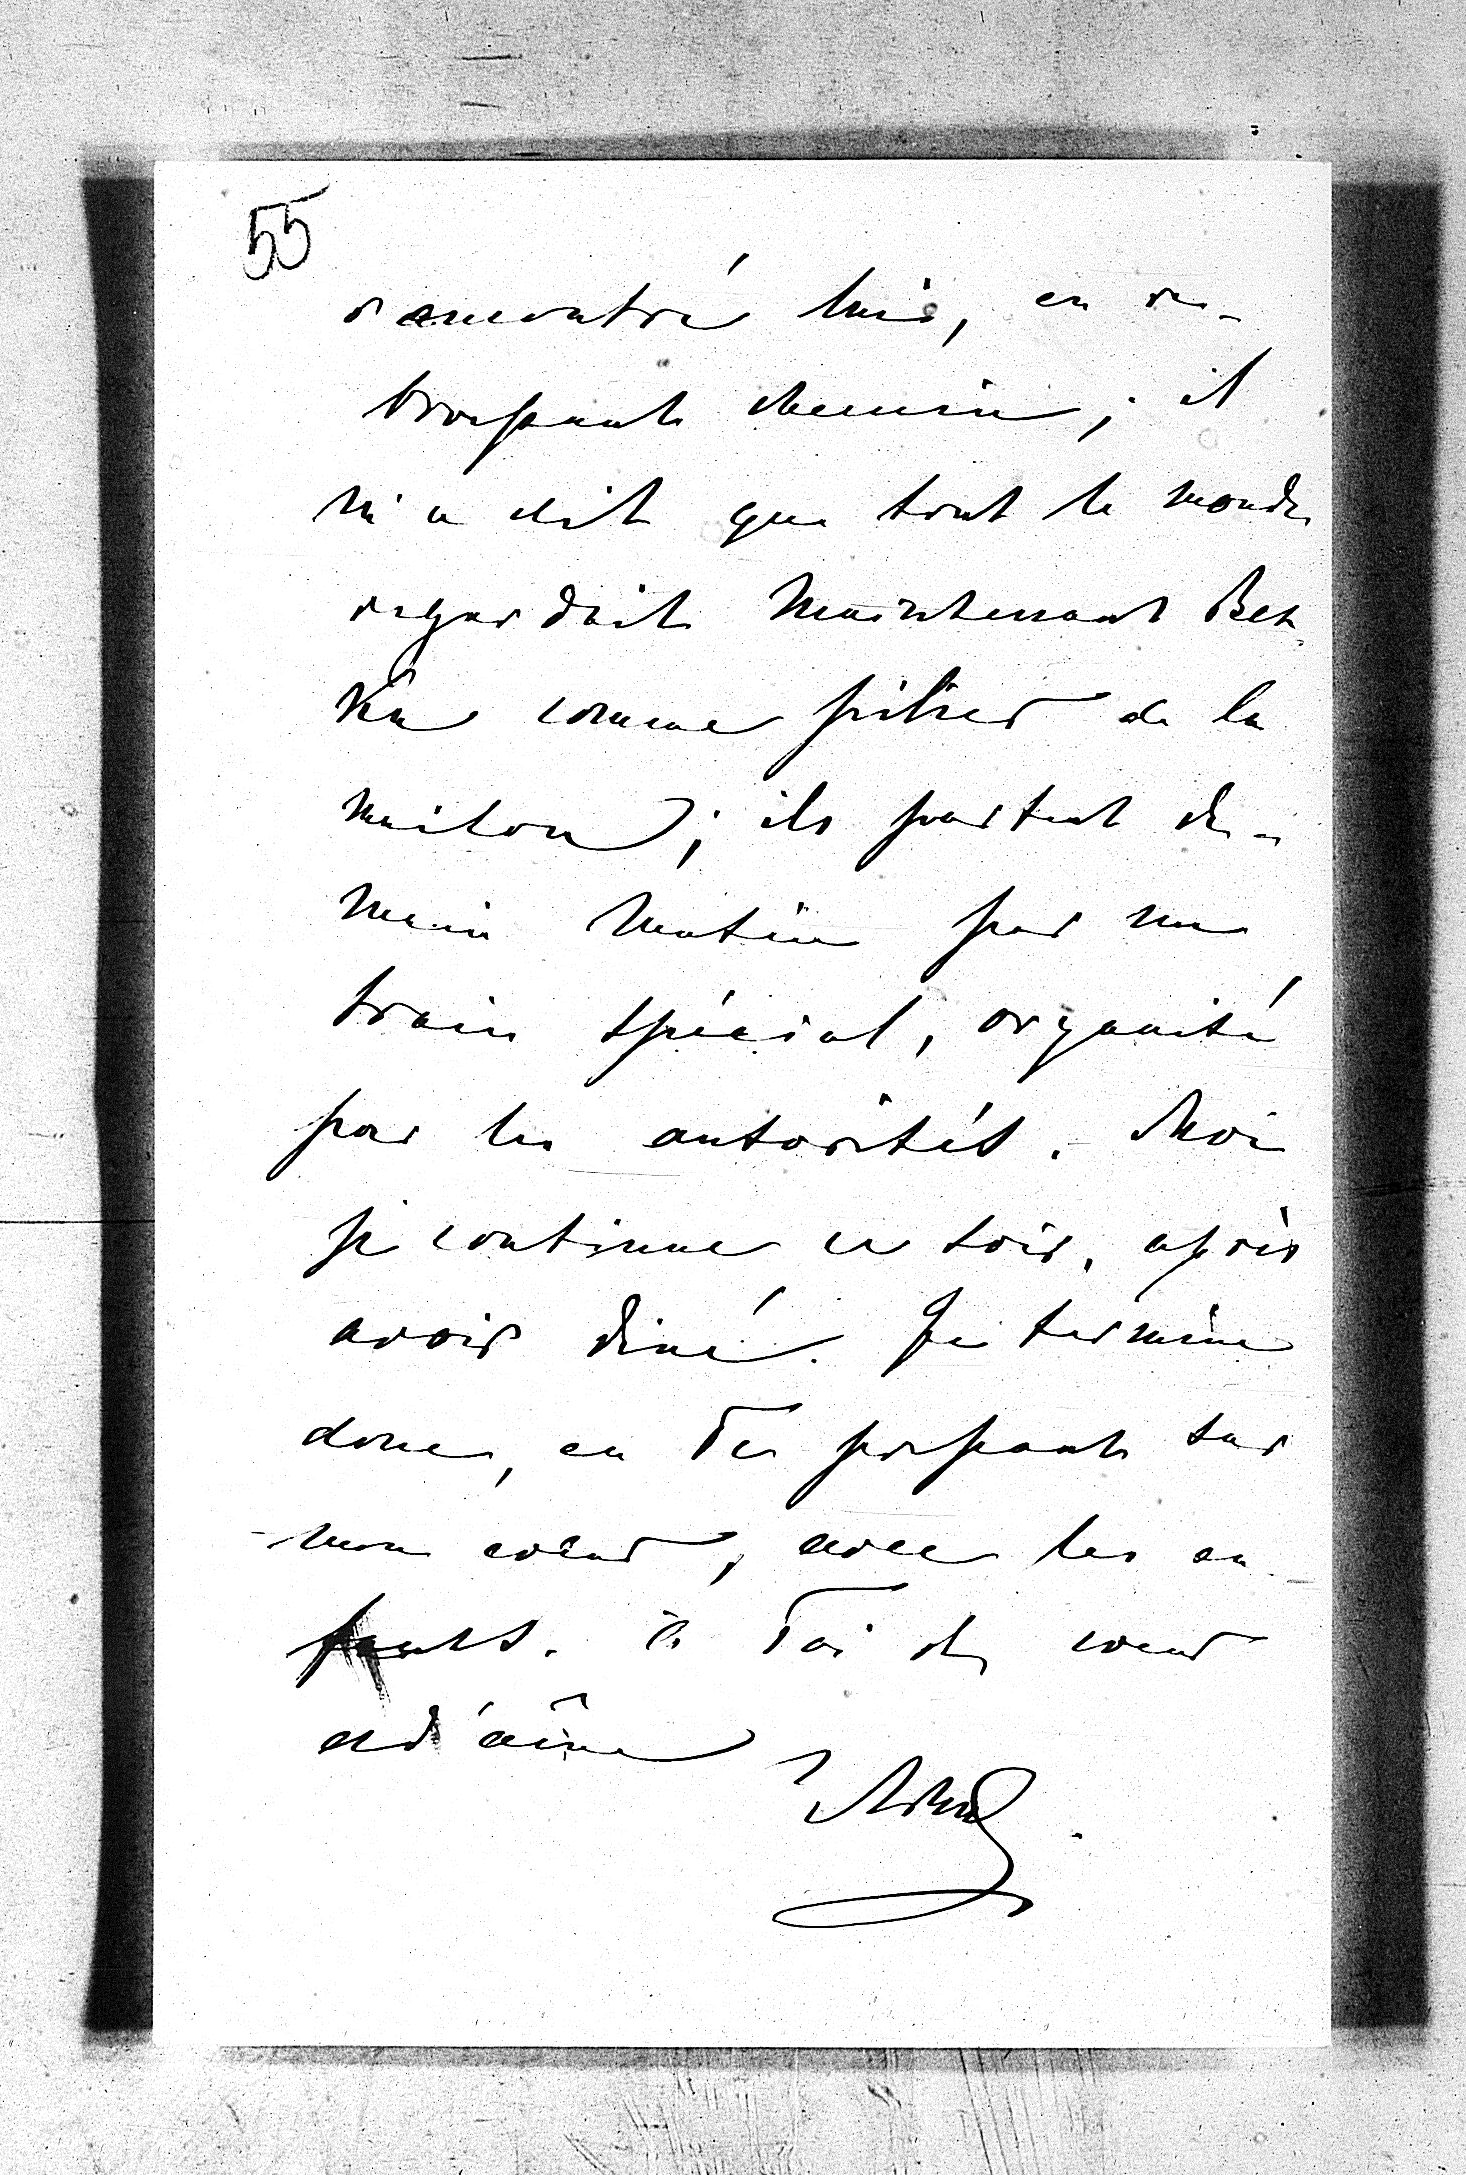 55
rencontré lui, en re-
broussant chemin; il
m'a dit que tout le monde
regardait maintenant Bet-
ka comme pilier de la
maison; ils partent de-
main matin par un
train spécial, organisé
par les autorités. Moi
je continue ce soir, après
avoir diné. Je termine
donc, en Te pressant sur
mon coeur, avec les en-
fants. à Toi de coeur
et d'âme